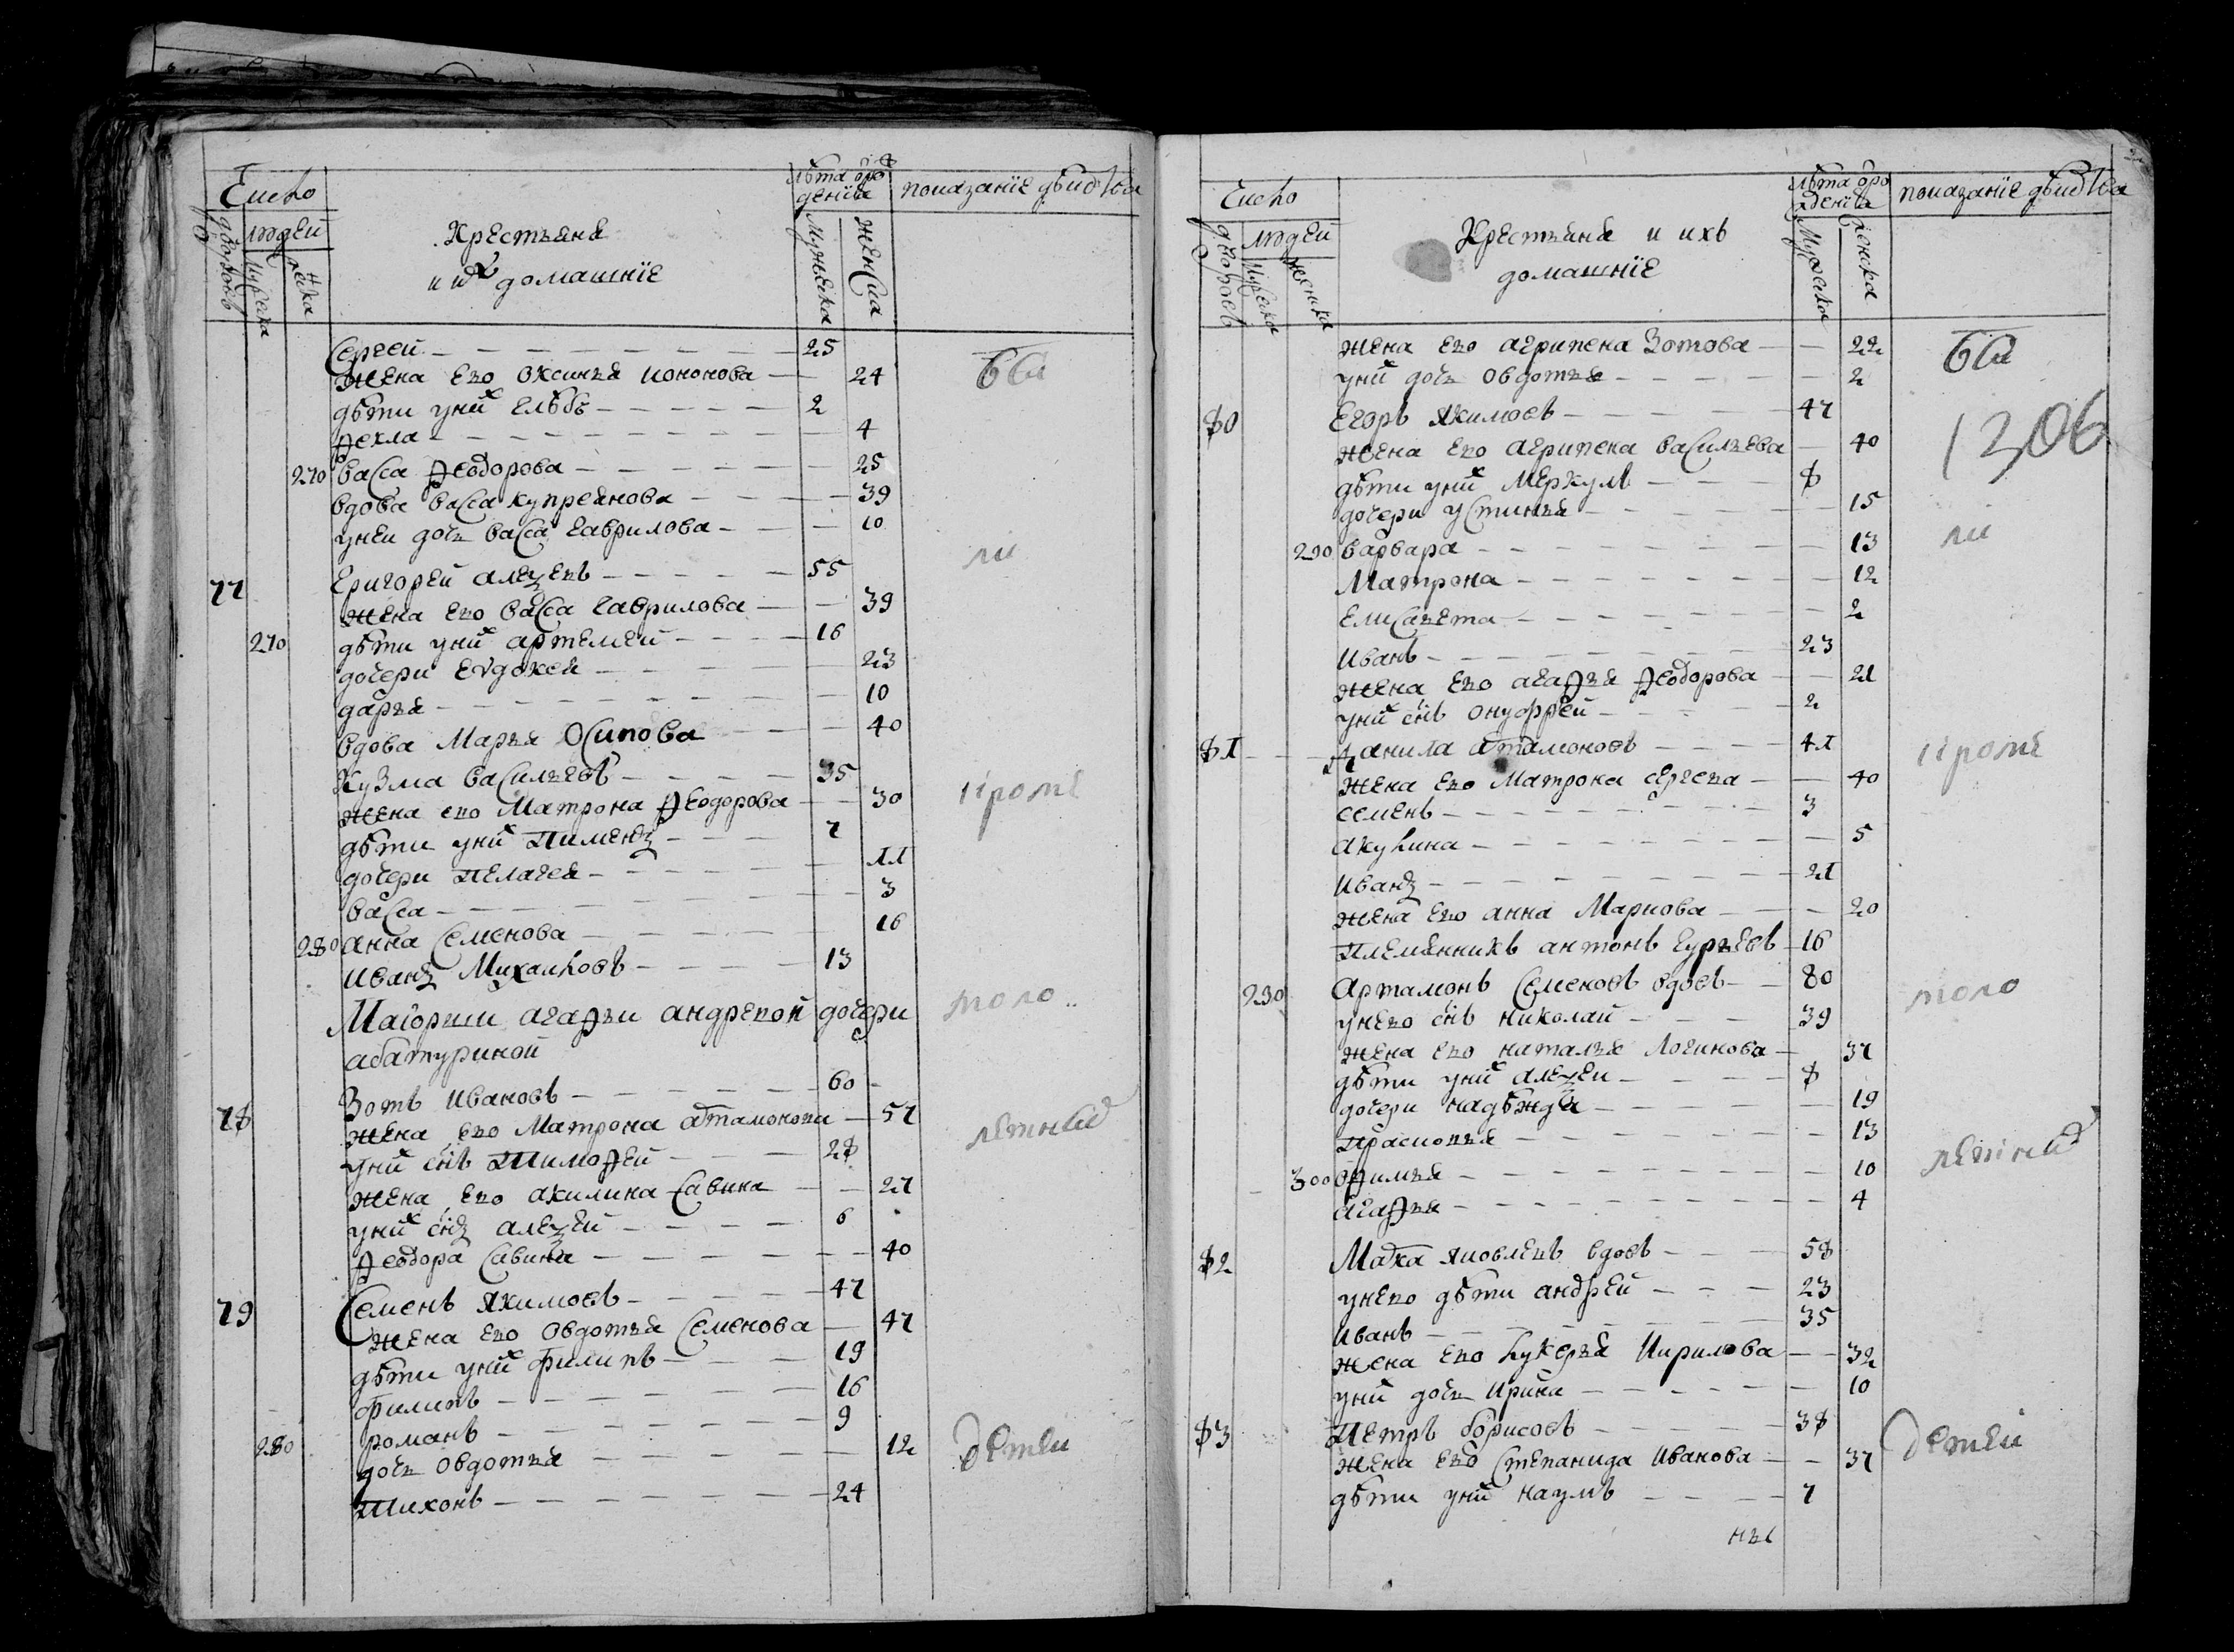 Число
людей
дворовъ
мужеска
женска
Крестьяня
и их домашніе
лѣта от рождения
Мужеска
Женска
показаніе дѣйства
Сергей 25
Жена его Оксинья Иононова 24
дѣти у них Глѣбъ 2
Ѳекла 4
270 Васса Ѳеодорова 25
вдова Васса Купреянова 39
у неи дочь Васса Гаврилова 10
77 Григорей Алеѯеевъ 55
Жена его Васса Гаврилова 39
270 дѣти у них Артемей 16
дочери Евдокея 23
Дарья 10
вдова Марья Осипова 40
Кузма Васильевъ 35
Жена его Матрона Ѳеодорова 30
дѣти у них Пименъ 7
дочери Пелагея 11
Васса 3
280 Анна Семенова 16
Иванъ Михаиловъ 13
Маіорши Агаѳьи Андревой дочери
Абатуриной
78 Зотъ Ивановъ 60
Жена его Матрона Артамонова 57
у них снъ Тимоѳей 28
Жена его Акилина Савина 27
у них снъ Алеѯей 6
Ѳеодора Савина 40
79 Семенъ Якимовъ 47
Жена его Овдотья Семенова 47
дѣти у них Филипъ 19
Филипъ 16
280 Романъ 9
дочь Овдотья 12
Тихонъ 24
бы
ли
кроме
мало
летныхъ
детей
Число
людей
дворовъ
мужеска
женска
Крестьяня и ихъ
домашніе
лѣта от рождения
Мужеска
Женска
показаніе дѣйства
Жена его Агрипена Зотова 22
у них дочь Овдотья 2
80 Егоръ Якимовъ 47
Жена его Агрипена Васильева 40
дѣти у них Меркулъ 8
дочери Устинья 15
290 Варвара 13
Матрона 12
Елисавета 2
Иванъ 23
Жена его Агаѳья Ѳеодорова 21
у них снъ Онуфрей 2
81 Данила Артамоновъ 41
Жена его Матрона Сергева 40
Семенъ 3
Акулина 5
Иванъ 21
Жена его Анна Маркова 20
Племянникъ Антонъ Гурьевъ 16
290 Артамонъ Семеновъ вдовъ 80
у него снъ Николай 39
Жена его Наталья Логинова 37
дѣти у них Алеѯей 8
дочери Надѣжда 19
Прасковья 13
300 Офимья 10
Агаѳья 4
82 Яковлевъ вдовъ 58
у него дѣти Андрей 23
Иванъ 35
Жена его Лукерья Кирилова 32
у них дочь Ирина 10
83 Петръ Борисовъ 38
Жена его Степанида Иванова 37
дѣти у них Наумъ 7
бы
1306
ли
кроме
мало
летных
детей